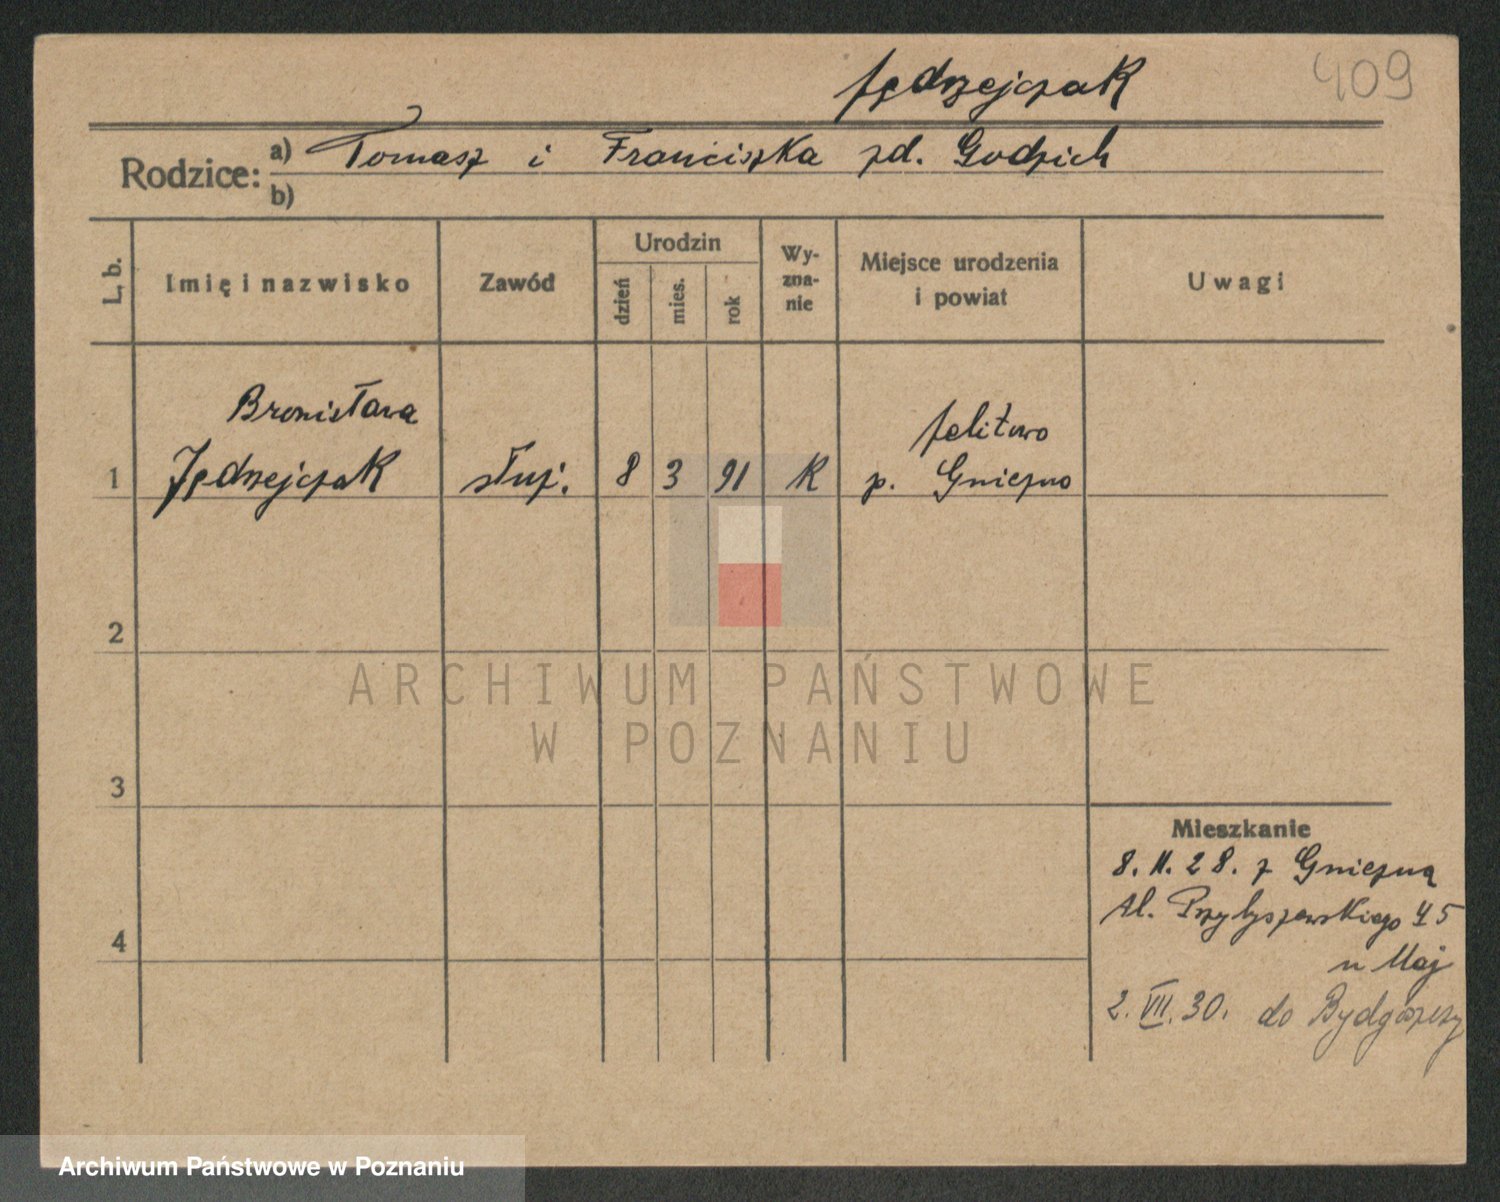 409
Jędrzejczak
Rodzice: a) Tomasz i Franciszka zd. Godzich
b)
L. b. Imię i nazwisko Zawód Urodzin dzień mies. rok Wy-zna-nie Miejsce urodzenia i powiat Uwagi
Bronisława Jelitowo
1 Jędrzejczak służ. 8 3 91 K p. Gniezno
2
3
4
Mieszkanie
8. II. 28. z Gniezna
Al. Przybyszewskiego 45
u Maj
2. VII. 30. do Bydgoszczy
ARCHIWUM PAŃSTWOWE
W POZNANIU
Archiwum Państwowe w Poznaniu